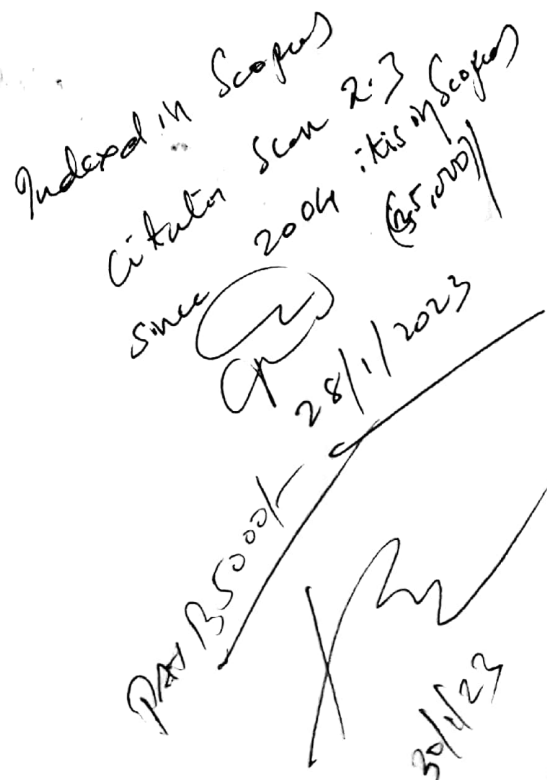 Indexed in Scopus
Citation Scan 2.3
since 2004 it is in Scopus
(Rs 5,000)/
28/1/2023
PAY Rs 5000/-
30/1/23